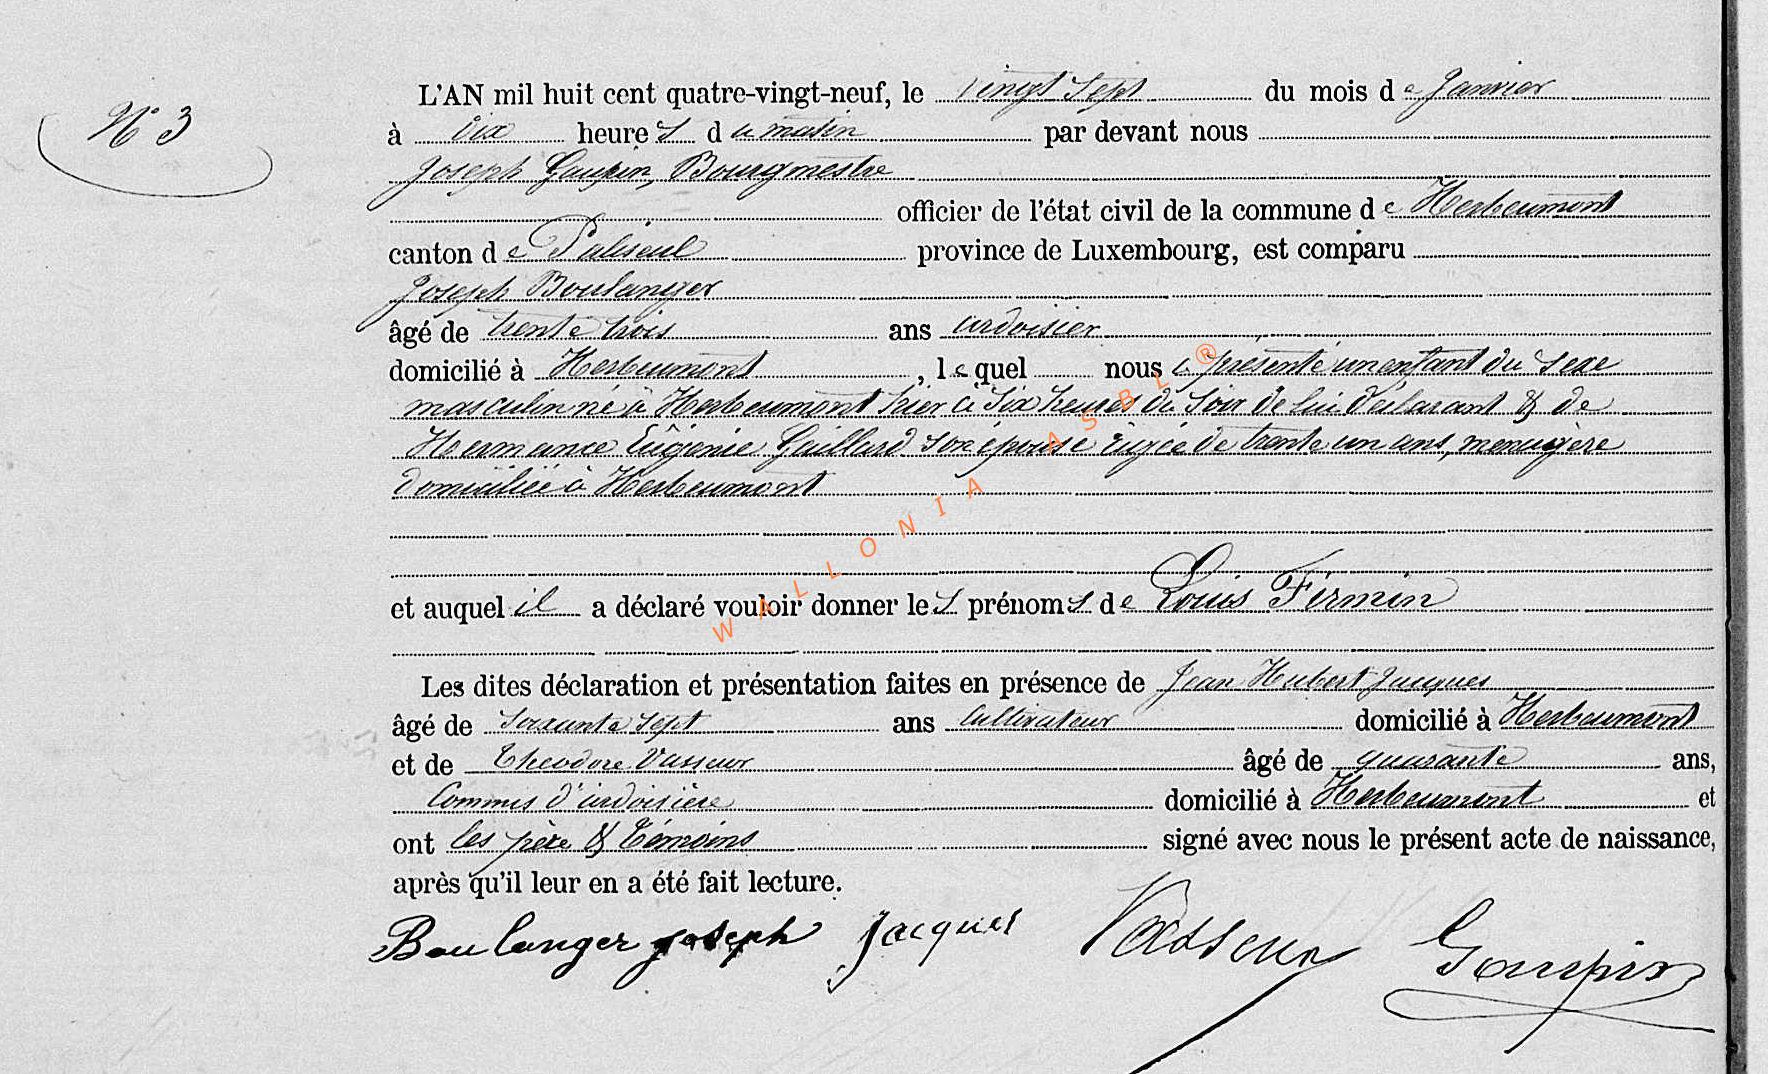 N° 3
L'AN mil huit cent quatre-vingt-neuf, le vingt sept du mois de Janvier
à dix heures du matin par devant nous
Joseph Goupin, Bourgmestre
officier de l'état civil de la commune de Herbeumont
canton de Paliseul province de Luxembourg, est comparu
Joseph Boulanger
âgé de trente trois ans ardoisier
domicilié à Herbeumont, lequel nous a présenté un enfant du sexe
masculin né à Herbeumont hier à six heures du soir de lui déclarant & de
Hermance Eugénie Gaillard son épouse âgée de trente un ans, menagère
domiciliée à Herbeumont
et auquel il a déclaré vouloir donner les prénoms de Louis Firmin
Les dites déclaration et présentation faites en présence de Jean Hubert Jacques
âgé de soixante sept ans cultivateur domicilié à Herbeumont
et de Théodore Vasseur âgé de quarante ans,
Commis d'ardoisière domicilié à Herbeumont et
ont les père & témoins signé avec nous le présent acte de naissance,
après qu'il leur en a été fait lecture.
Boulanger joseph Jacques Vasseur Goupin
WALLONIA ASBL®